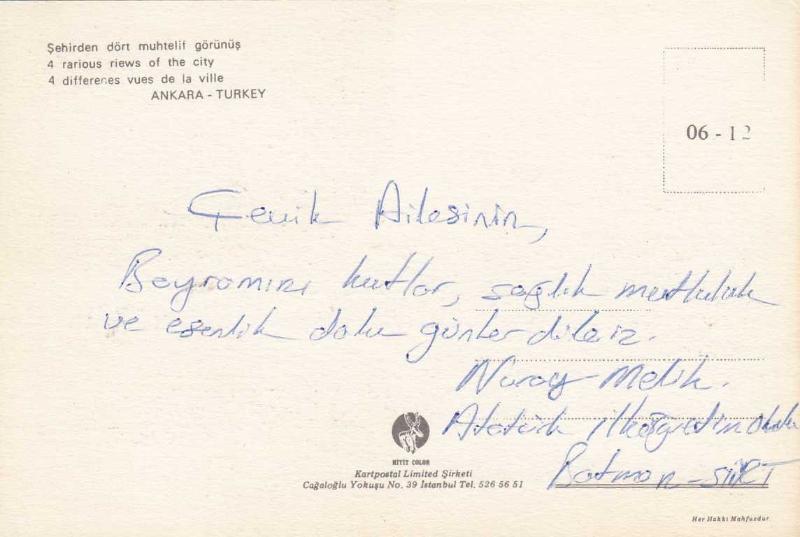 Şehirden dört muhtelif görünüş
4 rarious riews of the city
4 differenes vues de la ville
ANKARA - TURKEY
06 - 12
Çevik Ailesinin,
Bayramını kutlar, sağlık mutluluk
ve esenlik dolu günler dileriz.
Nuray - Melik.
Atatürk İlköğretim Okulu
Batman - SİİRT
HITIT COLOR
Kartpostal Limited Şirketi
Cağaloğlu Yokuşu No. 39 İstanbul Tel. 526 56 51
Her Hakkı Mahfuzdur